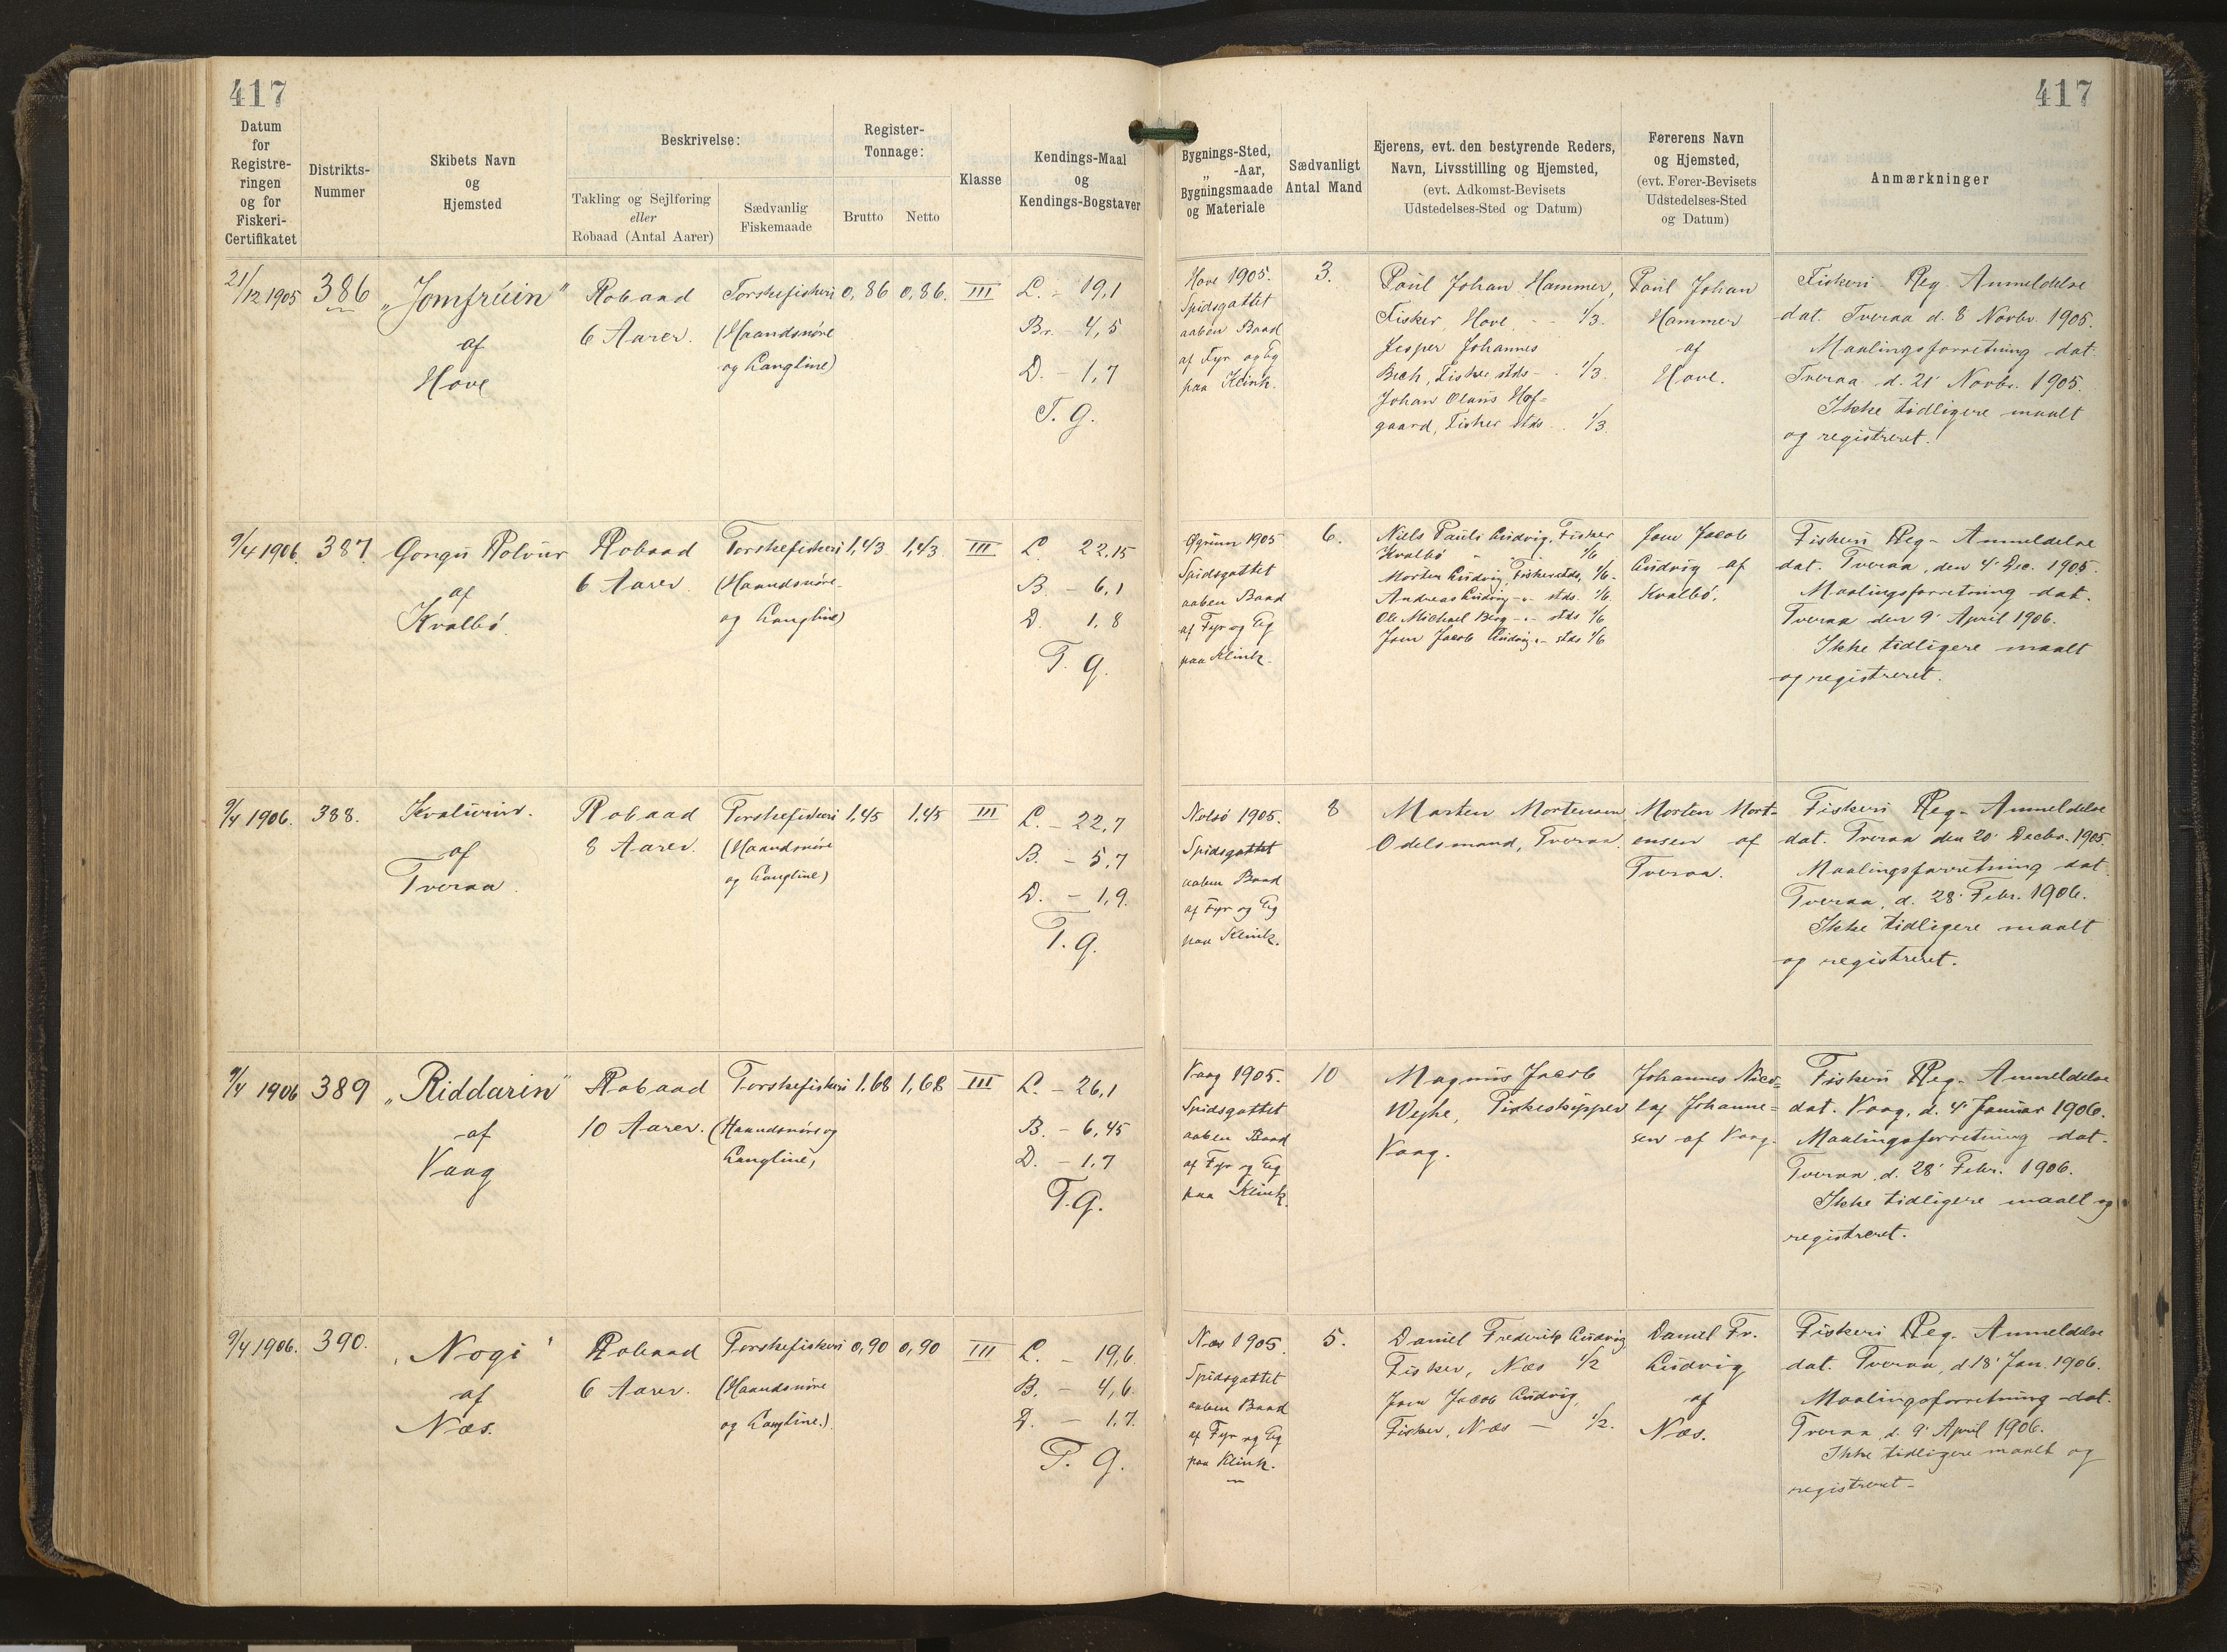 417
417
Datum
for
Registre-
ringen
og for
Fiskeri-
Certifikatet
Distrikts-
Nummer
Skibets Navn
og
Hjemsted
Beskrivelse:
Takling og Sejlføring
eller
Robaad (Antal Aarer)
Sædvanlig
Fiskemaade
Register-
Tonnage:
Brutto
Netto
Klasse
Kendings-Maal
og
Kendings-Bogstaver
Bygnings-Sted,
„ -Aar,
Bygningsmaade
og Materiale
Sædvanligt
Antal Mand
Ejerens, evt. den bestyrende Reders,
Navn, Livsstilling og Hjemsted,
(evt. Adkomst-Bevisets
Udstedelses-Sted og Datum)
Førerens Navn
og Hjemsted,
(evt. Fører-Bevisets
Udstedelses-Sted
og Datum)
Anmærkninger
21/12 1905
386
„Jomfrúin"
af
Hove
Robaad
6 Aarer.
Torskefiskeri
(Haandsnøre
og Langline)
0,86
0,86.
III
L. - 19,1
Br. - 4,5
D. - 1,7
T. G.
Hove 1905.
Spidsgattet
aaben Baad
af Fyr og Eg
paa Klink.
3.
Poul Johan Hammer,
Fisker, Hove - 1/3.
Jesper Johannes
Bech, Fisker stds - 1/3.
Johan Olaus Hof=
gaard, Fisker stds .. 1/3.
Poul Johan
Hammer
af
Hove.
Fiskeri Reg. Anmeldelse
dat. Tveraa d. 8 Novbr. 1905.
Maalingsforretning dat.
Tveraa d. 21' Novbr. 1905.
Ikke tidligere maalt
og registreret.
9/4 1906.
387.
Gongu Rolvur
af
Kvalbø.
Robaad
6 Aarer.
Torskefiskeri
(Haandsnøre-
og Langline)
1,43
1,43
III
L. 22,15
B. - 6,1
D. 1,8
T. G.
1905
Spidsgattet
aaben Baad
af Fyr og Eg
paa Klink.
6.
Niels Pauli Ludvig, Fisker
Kvalbø - 1/6
Morten Ludvig, Fisker stds, 1/6.
Andreas Ludvig -"- stds. 1/6
Ole Michael Berg -"- stds 1/6
Joen Jacob Ludvig -"- stds 1/6
Joen Jacob
Ludvig af
Kvalbø.
Fiskeri Reg- Anmeldelse
dat. Tveraa, den 4' Dec. 1905.
Maalingsforretning dat.
Tveraa den 9' April 1906.
Ikke tidligere maalt
og registreret.
9/4 1906.
388.
af
Tveraa.
Robaad
8 Aarer.
Torskefiskeri
(Haandsnøre
og Langline)
1,45
1,45
III
L. - 22,7
B. - 5,7
D. - 1,9.
T. G.
Nolsø 1905.
Spidsgattet
aaben Baad
af Fyr og Eg
paa Klink.
8
Morten Mortensen,
Odelsmand, Tveraa.
Morten Mort=
ensen af
Tveraa.
Fiskeri Reg- Anmeldelse
dat. Tveraa den 20' Decbr. 1905.
Maalingsforretning dat.
Tveraa, d. 28' Febr. 1906.
Ikke tidligere maalt
og registreret.
9/4 1906
389
„Riddarin"
af
Vaag
Robaad
10 Aarer.
Torskefiskeri
(Haandsnøre og
Langline)
1,68
1,68
III
L. - 26,1
B. - 6,45
D. - 1,7
T. G.
Vaag 1905.
Spidsgattet
aaben Baad
af Fyr og Eg
paa Klink.
10
Magnus Jacob
Wejhe, Fiskeskipper
Vaag.
Johannes Nico=
laj Johanne=
sen af Vaag.
Fiskeri Reg- Anmeldelse
dat. Vaag, d. 4' Januar 1906.
Maalingsforretning dat.
Tveraa, d. 28' Febr. 1906.
Ikke tidligere maalt og
registreret.
9/4 1906.
390.
„Nogi"
af
Næs.
Robaad
6 Aarer.
Torskefiskeri
(Haandsnøre
og Langline.)
0,90
0,90
III
L. - 19,6.
B. - 4,6.
D. - 1,7.
T. G.
Næs 1905.
Spidsgattet
aaben Baad
af Fyr og Eg
paa Klink.
5.
Daniel Frederik Ludvig
Fisker, Næs 1/2
Joen Jacob Ludvig,
Fisker, Næs - 1/2.
Daniel Fr.
Ludvig
af
Næs.
Fiskeri Reg. Anmeldelse
dat. Tveraa, d 18' Jan. 1906.
Maalingsforretning dat.
Tveraa, d. 9' April 1906.
Ikke tidligere maalt og
registreret-